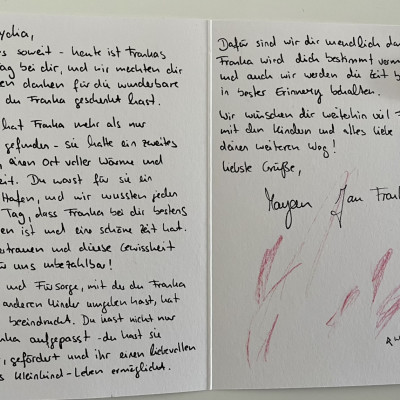 es soweit - heute ist Frankas
tag bei dir, und wir möchten dir
en danken für die wunderbare
du Franka geschenkt hast.
hat Franka mehr als nur
gefunden - sie hatte ein zweites
, einen Ort voller Wärme und
eit. Du warst für sie ein
Hafen, und wir wussten jeden
Tag, dass Franka bei dir bestens
en ist und eine schöne Zeit hat.
ertrauen und diese Gewissheit
für uns unbezahlbar!
und Fürsorge, mit der du Franka
anderen Kinder umgeben hast, hat
beeindruckt. Du hast nicht nur
nka aufgepasst - du hast sie
, gefördert und ihr einen liebevollen
s Kleinkind-Leben ermöglicht.
Dafür sind wir dir unendlich dan
Franka wird dich bestimmt verm
und auch wir werden die Zeit b
in bester Erinnerung behalten.
Wir wünschen dir weiterhin viel
mit den Kindern und alles liebe
deinen weiteren Weg!
liebste Grüße,
Jan Fran